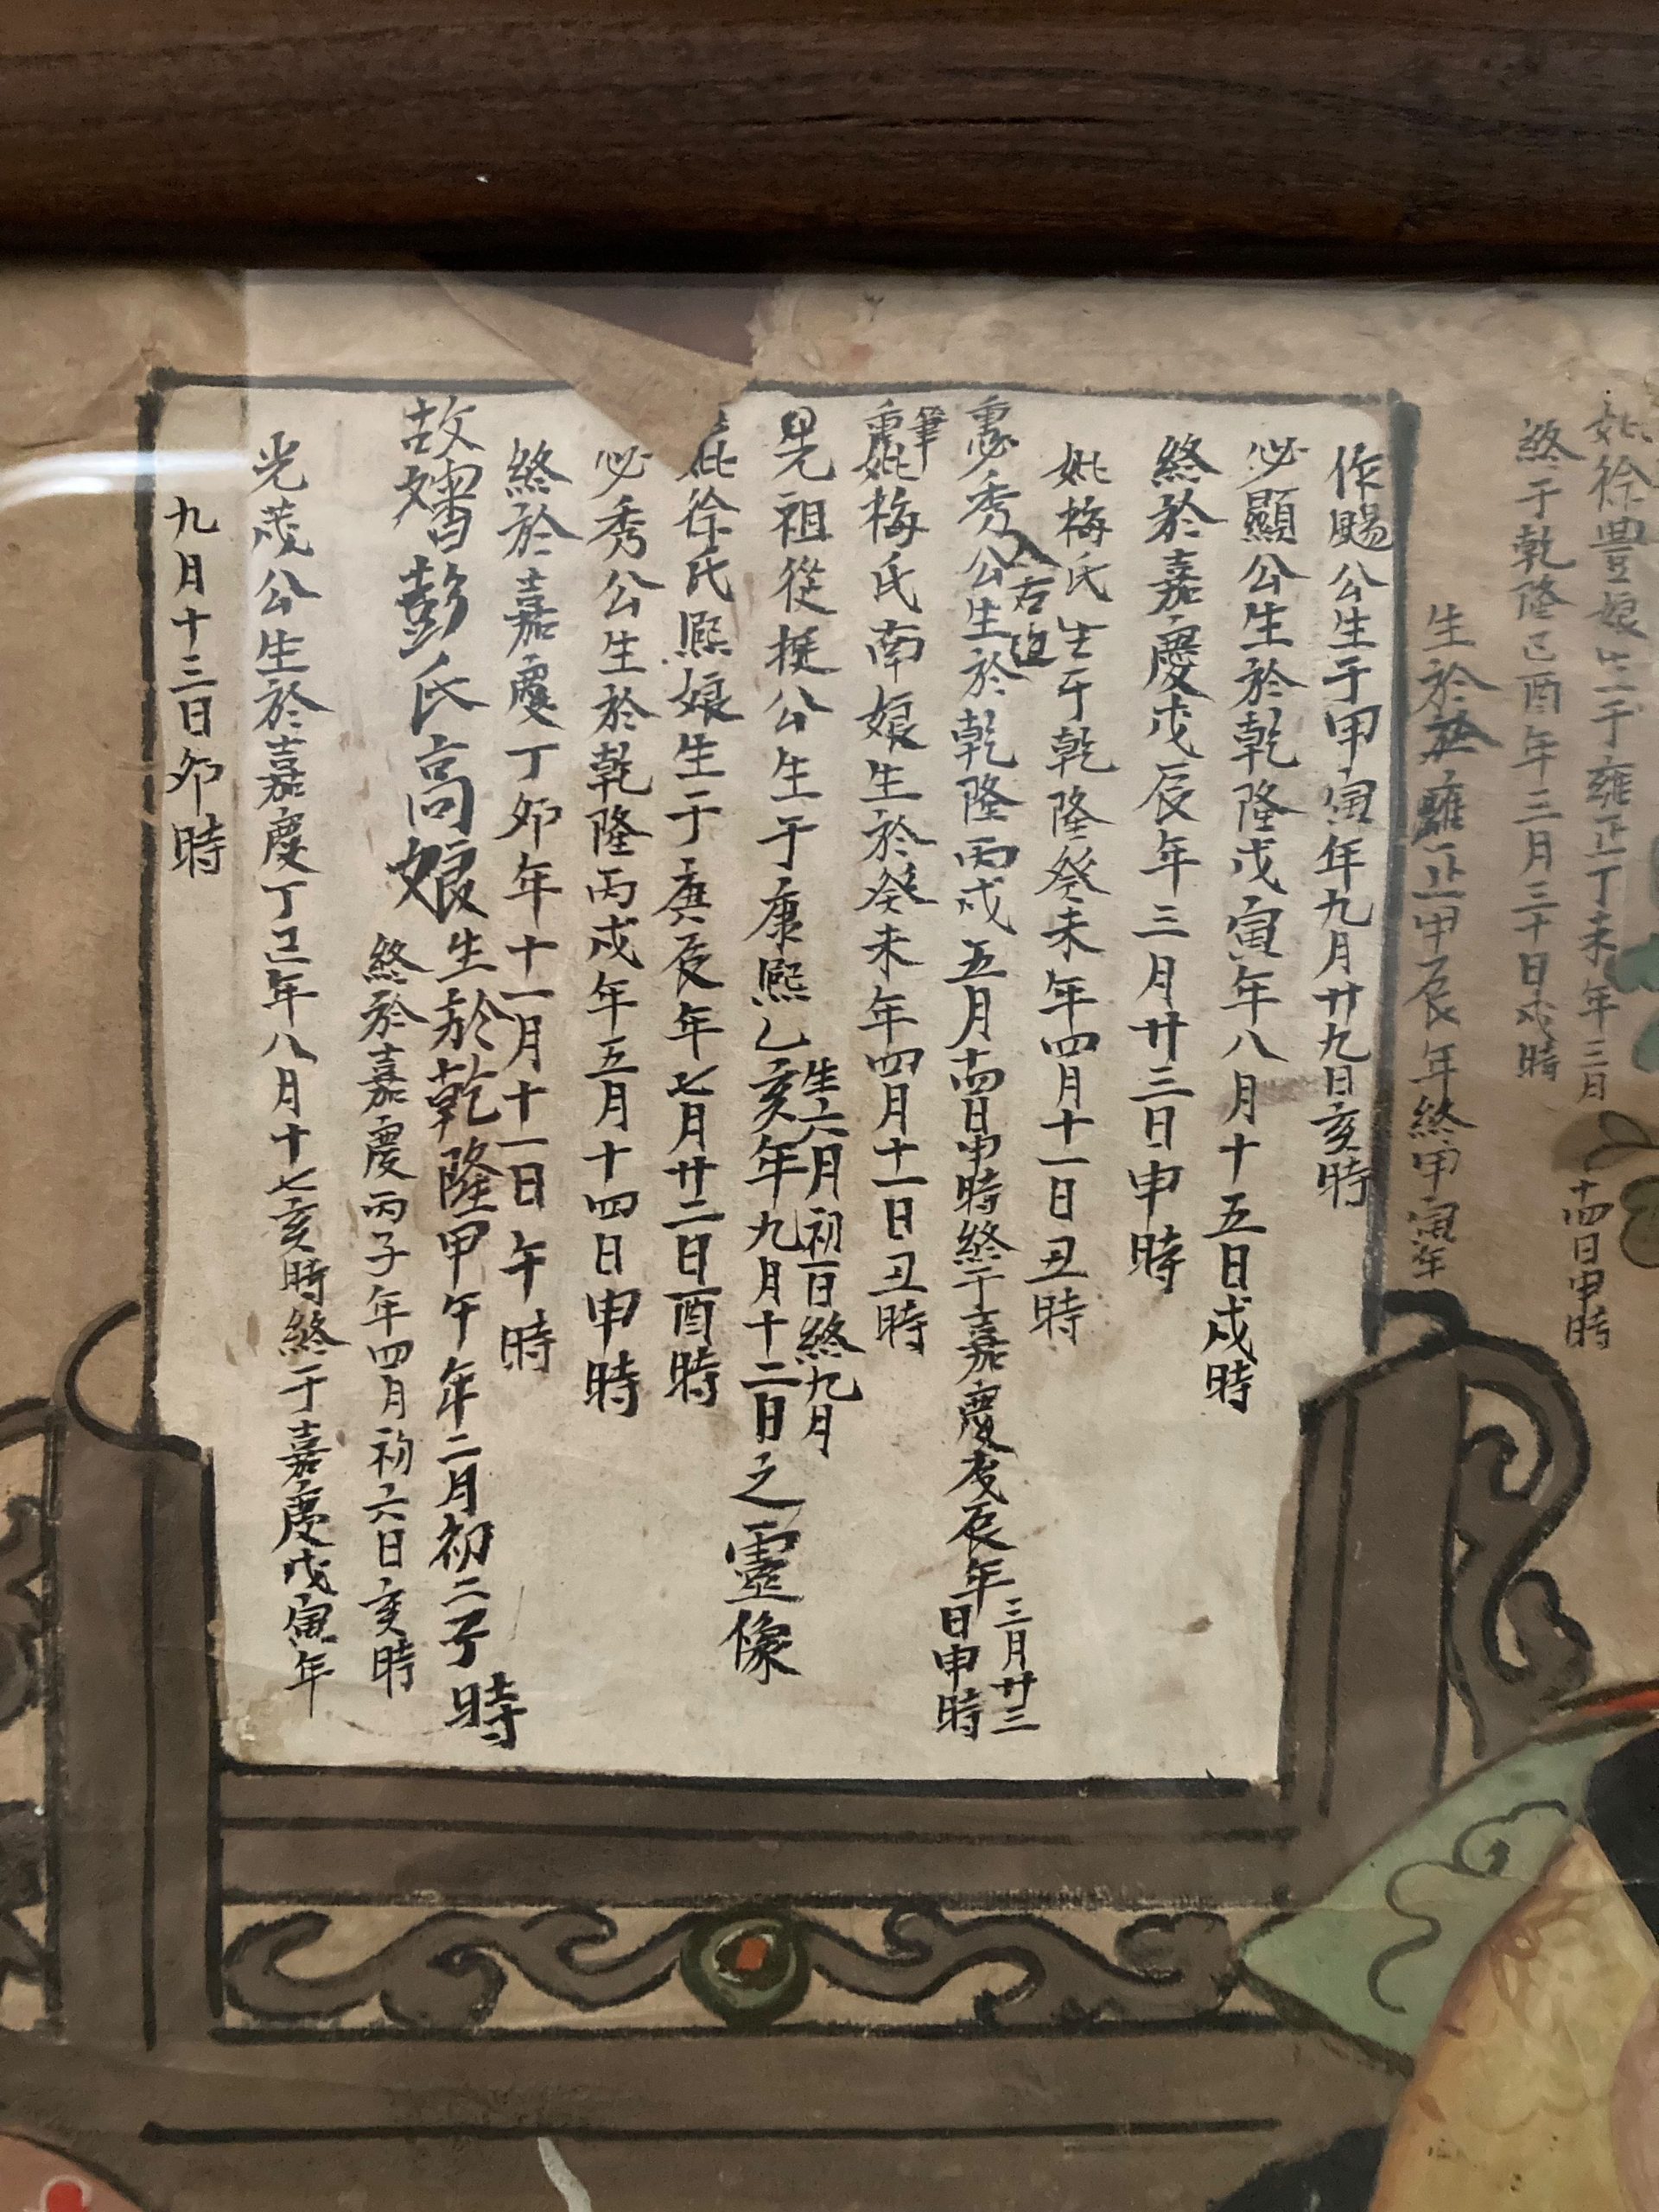 妣徐豊娘生于雍正丁未年三月
十四日申時
終于乾隆己酉年三月三十日戌時
生於雍正甲辰年終甲寅年
作賜公生于甲寅年九月廿九日亥時
必顯公生於乾隆戊寅年八月十五日戌時
終於嘉慶戊辰年三月廿三日申時
妣梅氏生于乾隆癸未年四月十一日丑時
入右邊
重必秀公生於乾隆丙戌五月十四日申時終于嘉慶戊辰年三月廿三日申時
重筆妣梅氏南娘生於癸未年四月十一日丑時
生六月初一日終九月
晃祖從挺公生于康熙乙亥年九月十二日之靈像
妣徐氏熙娘生于庚辰年七月廿二日酉時
必秀公生於乾隆丙戌年五月十四日申時
終於嘉慶丁卯年十一月十一日午時
故嬸彭氏高娘生於乾隆甲午年二月初二子時
終於嘉慶丙子年四月初六日亥時
光茂公生於嘉慶丁巳年八月十七亥時終于嘉慶戊寅年
九月十三日卯時